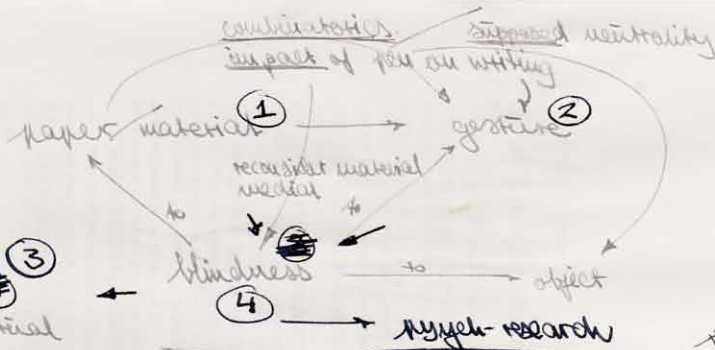 combinatorics. supposed neutrality
impact of pen on writing
paper material 1 gesture 2
reconsider material
medial
to to
3 blindness to object
4
research